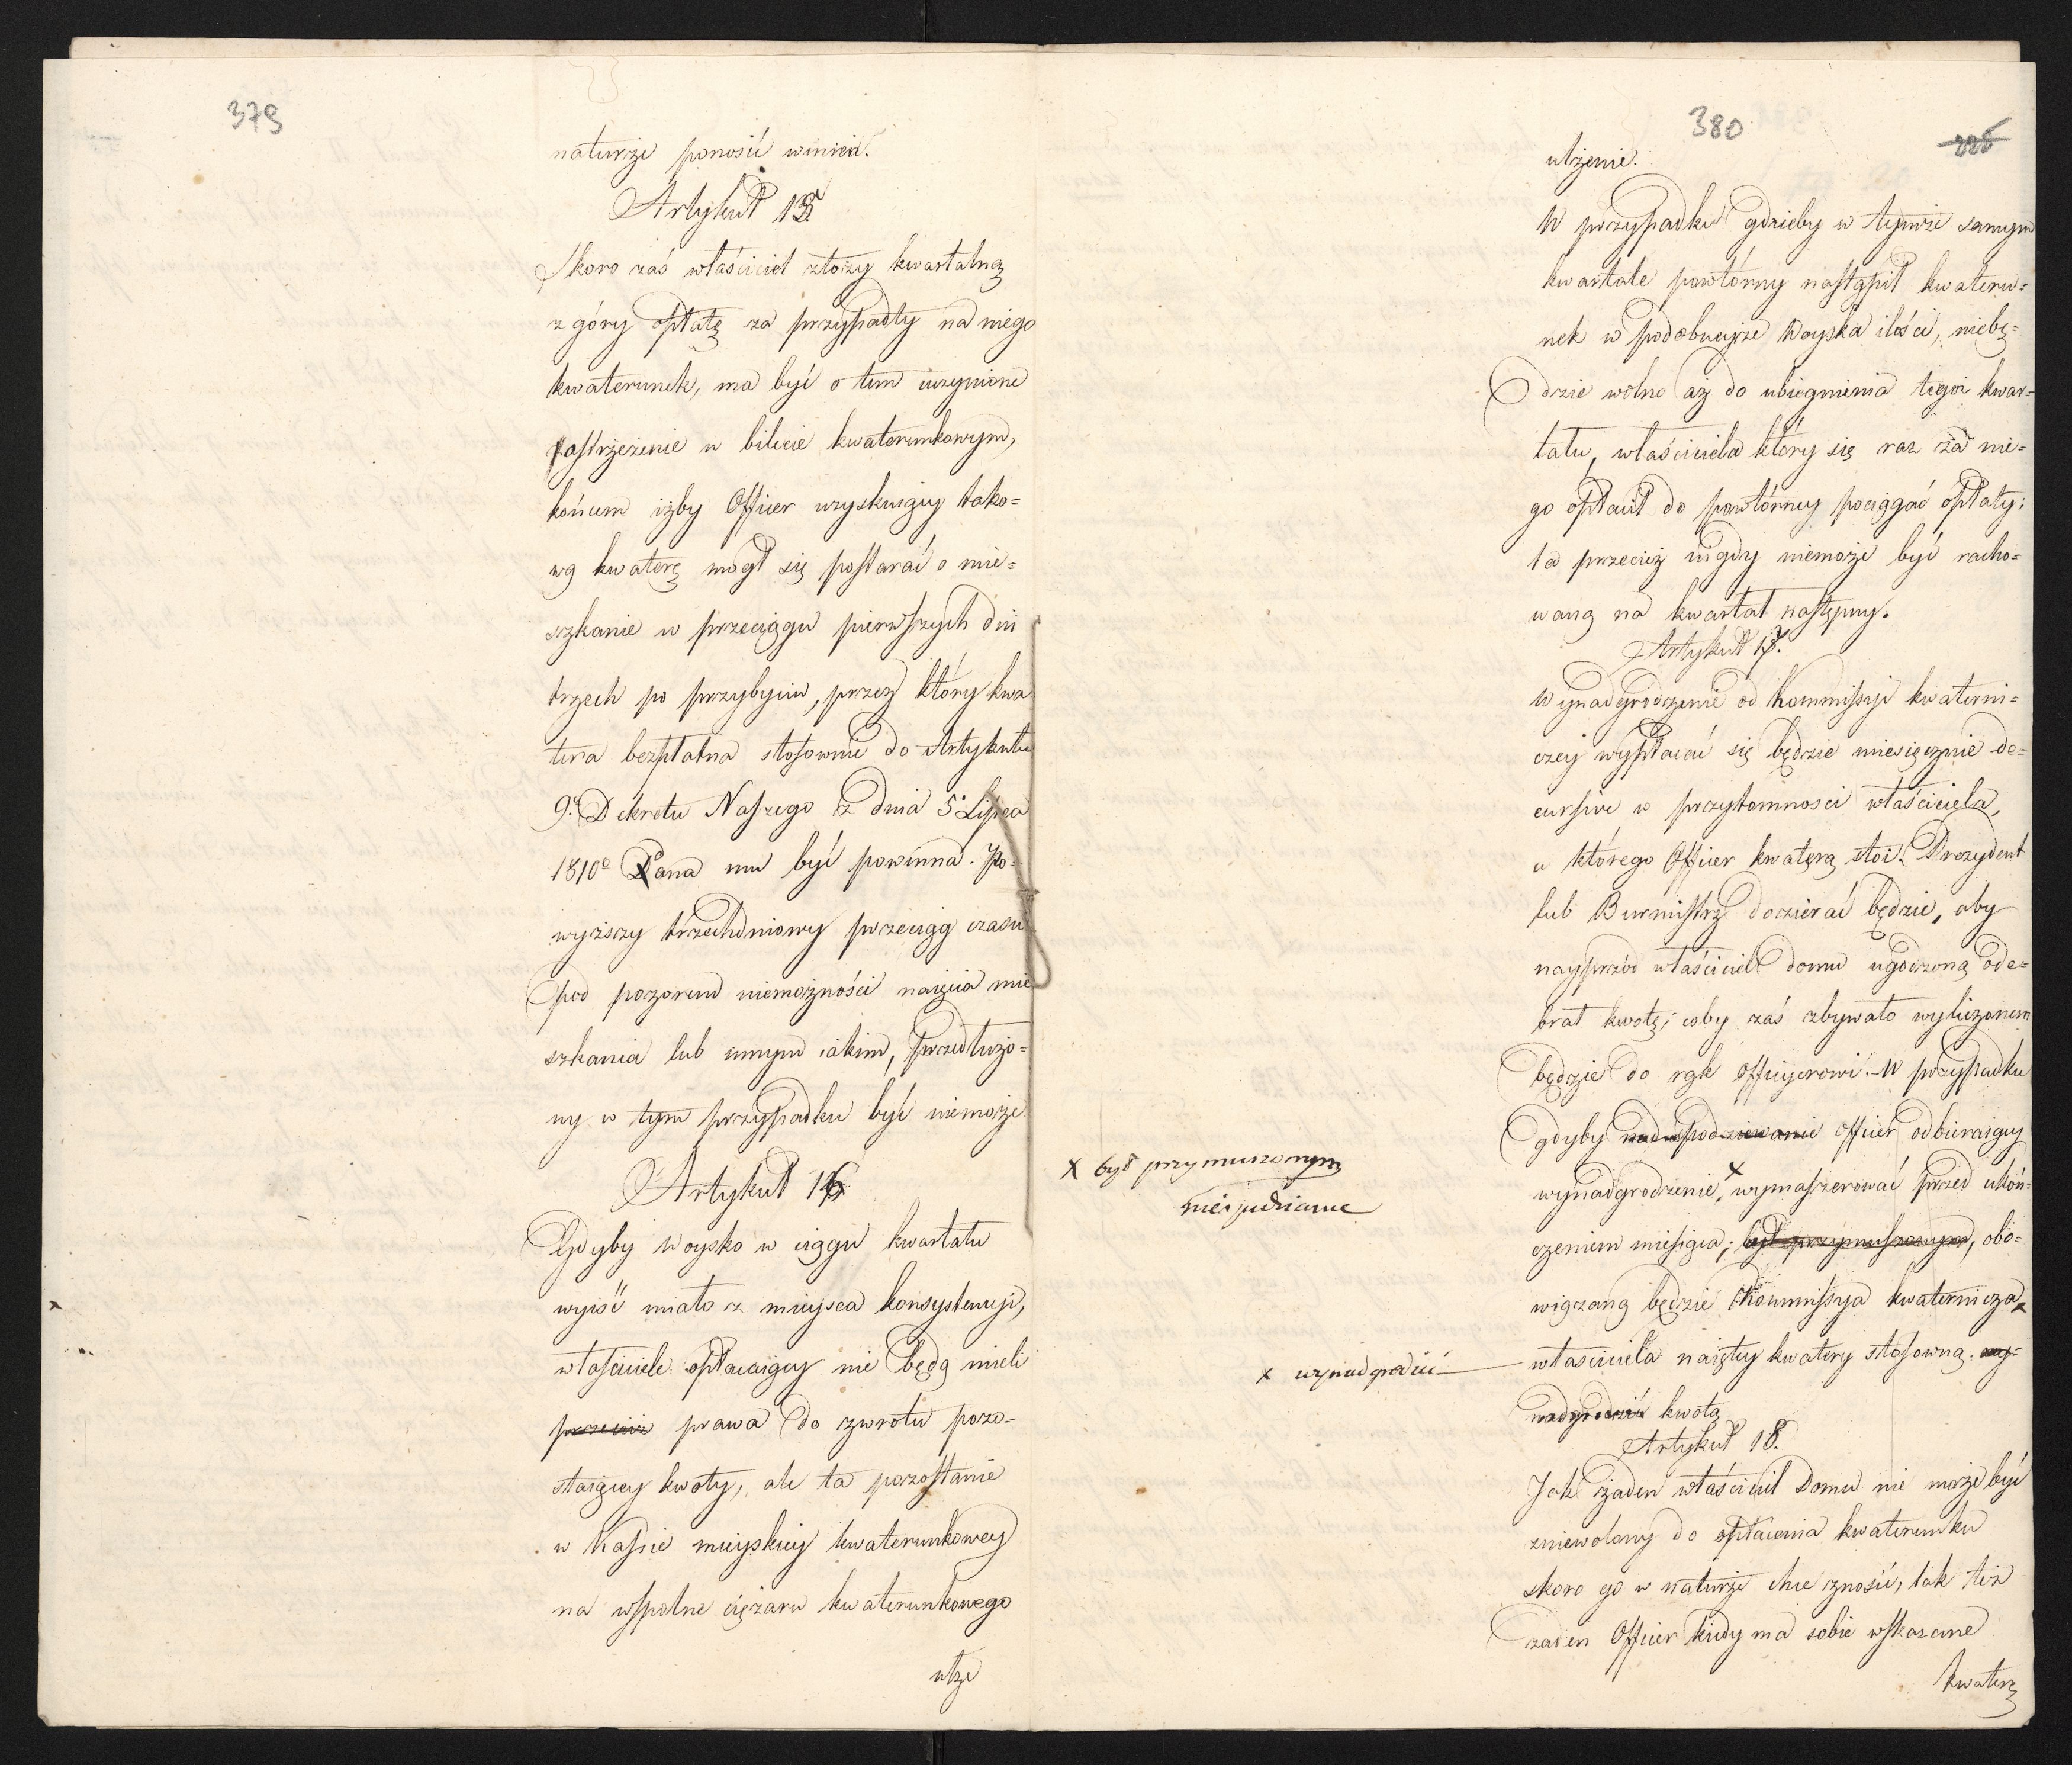 379
naturze ponosić winien.
Artykuł 15.
Skoro zaś właściciel złoży kwartalną
z góry opłatę za przypadły na niego
kwaterunek, ma być o tem uczynione
ostrzeżenie w bilecie kwaterunkowym,
końcem iżby Officer uzyskuiący tako=
wą kwaterę mógł się postarać o mie=
szkanie w przeciągu pierwszych dni
trzech po przybyciu, przez który kwa
tera bezpłatna stosownie do Artykułu
9o. Dekretu Naszego z dnia 5o Lipca
1810o Dana mu być powinna. Po=
wyższy trzechdniowy przeciąg czasu
pod pozorem niemożności naięcia mie
szkania lub innym iakim, przedłużo=
ny w tym przypadku być niemoże
Artykuł 16
Gdyby Woysko w ciągu kwartału
wyiść miało z mieysca konsystencyi,
właściciele opłacaiący nie będą mieli
przecież prawa do zwrotu pozo-
staiącey kwoty, ale ta pozostanie
w Kassie mieyskiey kwaterunkowey
na wspólne ciężaru kwaterunkowego
ulże
380
226
ulżenie.
W przypadku gdzieby w tymże samym
kwartale powtórny nastąpił kwateru=
nek w podobneyże Woyska ilości, niebę=
dzie wolno aż do ubiegnienia tegoż kwar=
tału, właściciela który się raz za nie=
go opłacił do powtórney pociągać opłaty;
ta przecież nigdy niemoże być racho=
waną na kwartał następny.
Artykuł 17.
Wynadgrodzenie od Kommissyi kwaterni=
czey wypłacać się będzie miesięcznie de=
cursive w przytomności właściciela,
u którego Officer kwaterą stoi. Prezydent
lub Burmistrz doczierać będzie, aby
nayprzód właściciel domu ugodzoną ode=
brał kwotę; coby zaś zbywało wyliczonem
będzie do rąk Officyerowi. W przypadku
gdyby nadspodziewanie Officer odbieraiący
wynadgrodzenie, x wymaszerować przed ukoń=
x był przymuszonym
niespodzianie
czeniem miesiąca; był przymuszonym, obo=
wiązaną będzie Kommissya kwaternicza x
x wynadgrodzić
właściciela naiętey kwatery stosowną wy=
nadgrodzić kwotą
Artykuł 18.
Jak żaden właściciel Domu nie może być
zniewolany do opłacenia kwaterunku
skoro go w naturze chce znosić, tak też
żaden Officer kiedy ma sobie wskazane
kwaterę